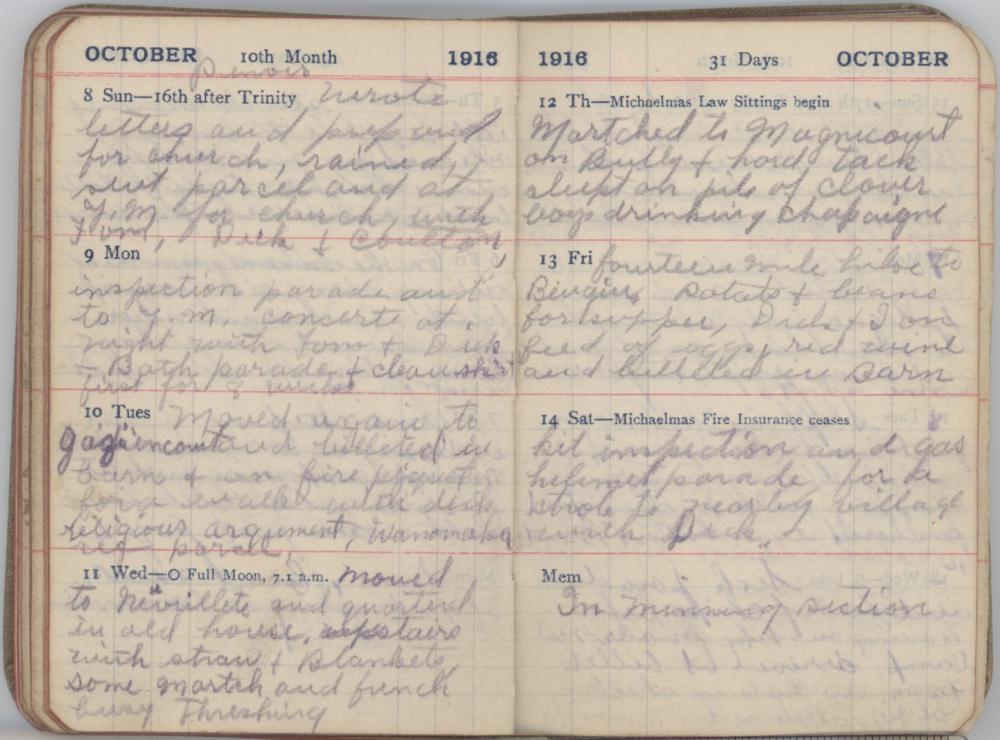 OCTOBER 10th Month 1916
8 Sun—16th after Trinity wrote
letters and prepared
for church, rained,
sent parcel and at
Y.M. for church, with
Tom, Dick & Coulton
9 Mon
inspection parade and
to Y.M. concerts at
night with Tom & Dick
Bath parade & clean shirt
first for 8 weeks
10 Tues Moved again to
and billeted in
barn & on fire picquet
for a walk with dick
religious argument, Wanamaker
parcel,
11 Wed—O Full Moon, 7.1 a.m. moved
to and quartered
in old house, upstairs
with straw & Blankets,
some martch and french
busy Threshing
1916 31 Days OCTOBER
12 Th—Michaelmas Law Sittings begin
Martched to Magnicourt
on Bully & hard tack
slept on pile of clover
boys drinking Chapaigne
13 Fri fourteen mile hike to
potato & beans
for supper, Dick & I on
feed of eggs, red wine
and billeted in Barn
14 Sat—Michaelmas Fire Insurance ceases
kit inspection and gas
helmet parade for a
strole to nearby village
with Dick,
Mem
In Minning section